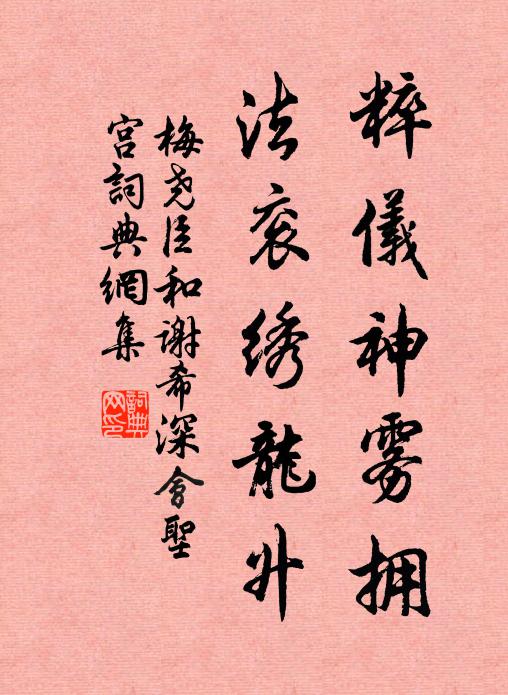 粹儀神雾拥
法衮绣龍升
梅尧臣和谢希深會聖
宫詞典網集
詞典网印